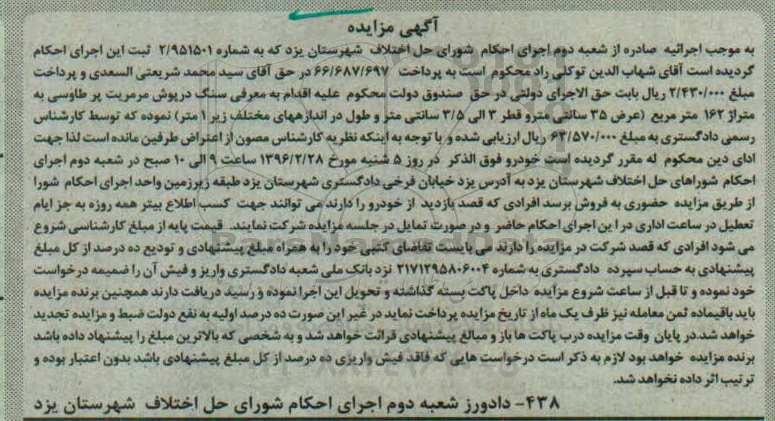 آگهی مزایده
به موجب اجرائیه صادره از شعبه دوم اجرای احکام شورای حل اختلاف شهرستان یزد که به شماره ۲/۹۵۱۵۰۱ ثبت این اجرای احکام
گردیده است آقای شهاب الدین توکلی راد محکوم است به پرداخت ۶۶/۶۸۷/۶۹۷ در حق آقای سید محمد شریعتی السعدی و پرداخت
مبلغ ۲/۴۳۰/۰۰۰ ریال بابت حق الاجرای دولتی در حق صندوق دولت محکوم علیه اقدام به معرفی سنگ درپوش مرمریت پر طاوسی به
متراژ ۱۶۲ متر مربع (عرض ۳۵ سانتی مترو قطر ۳ الی ۳/۵ سانتی متر و طول در اندازههای مختلف زیر ۱ متر) نموده که توسط کارشناس
رسمی دادگستری به مبلغ ۶۳/۵۷۰/۰۰۰ ریال ارزیابی شده و با توجه به اینکه نظریه کارشناس مصون از اعتراض طرفین مانده است لذا جهت
ادای دین محکوم له مقرر گردیده است خودرو فوق الذکر در روز ۵ شنبه مورخ ۱۳۹۶/۲/۲۸ ساعت ۹ الی ۱۰ صبح در شعبه دوم اجرای
احکام شوراهای حل اختلاف شهرستان یزد به آدرس یزد خیابان فرخی دادگستری شهرستان یزد طبقه زیرزمین واحد اجرای احکام شورا
از طریق مزایده حضوری به فروش برسد افرادی که قصد بازدید از خودرو را دارند می توانند جهت کسب اطلاع بیتر همه روزه به جز ایام
تعطیل در ساعت اداری در این اجرای احکام حاضر و در صورت تمایل در جلسه مزایده شرکت نمایند. قیمت پایه از مبلغ کارشناسی شروع
می شود افرادی که قصد شرکت در مزایده را دارند می بایست تقاضای کتبی خود را به همراه مبلغ پیشنهادی و تودیع ده درصد از کل مبلغ
پیشنهادی به حساب سپرده دادگستری به شماره ۲۱۷۱۲۹۵۸۰۶۰۰۴ نزد بانک ملی شعبه دادگستری واریز و فیش آن را ضمیمه درخواست
خود نموده و تا قبل از ساعت شروع مزایده داخل پاکت بسته گذاشته و تحویل این اجرا نموده و رسید دریافت دارند همچنین برنده مزایده
باید باقیمانده ثمن معامله نیز ظرف یک ماه از تاریخ مزایده پرداخت نماید در غیر این صورت ده درصد اولیه به نفع دولت ضبط و مزایده تجدید
خواهد شد.در پایان وقت مزایده درب پاکت ها باز و مبالغ پیشنهادی قرائت خواهد شد و به شخصی که بالاترین مبلغ را پیشنهاد داده باشد
برنده مزایده خواهد بود لازم به ذکر است درخواست هایی که فاقد فیش واریزی ده درصد از کل مبلغ پیشنهادی باشد بدون اعتبار بوده و
ترتیب اثر داده نخواهد شد.
۴۳۸- دادورز شعبه دوم اجرای احکام شورای حل اختلاف شهرستان یزد